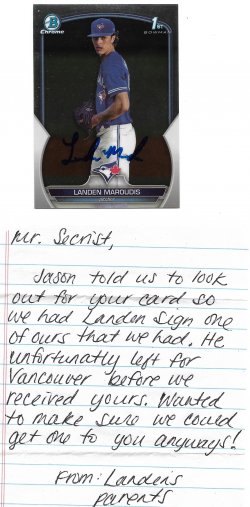 B
Chrome
1ST
BOWMAN
LANDEN MAROUDIS
Mr. Secrist,
Jason told us to look
out for your card so
we had Landen sign one
of ours that we had. He
unfortunatly left for
Vancouver before we
received yours. Wanted
to make sure we could
get one to you anyways!
From: Landen's
parents